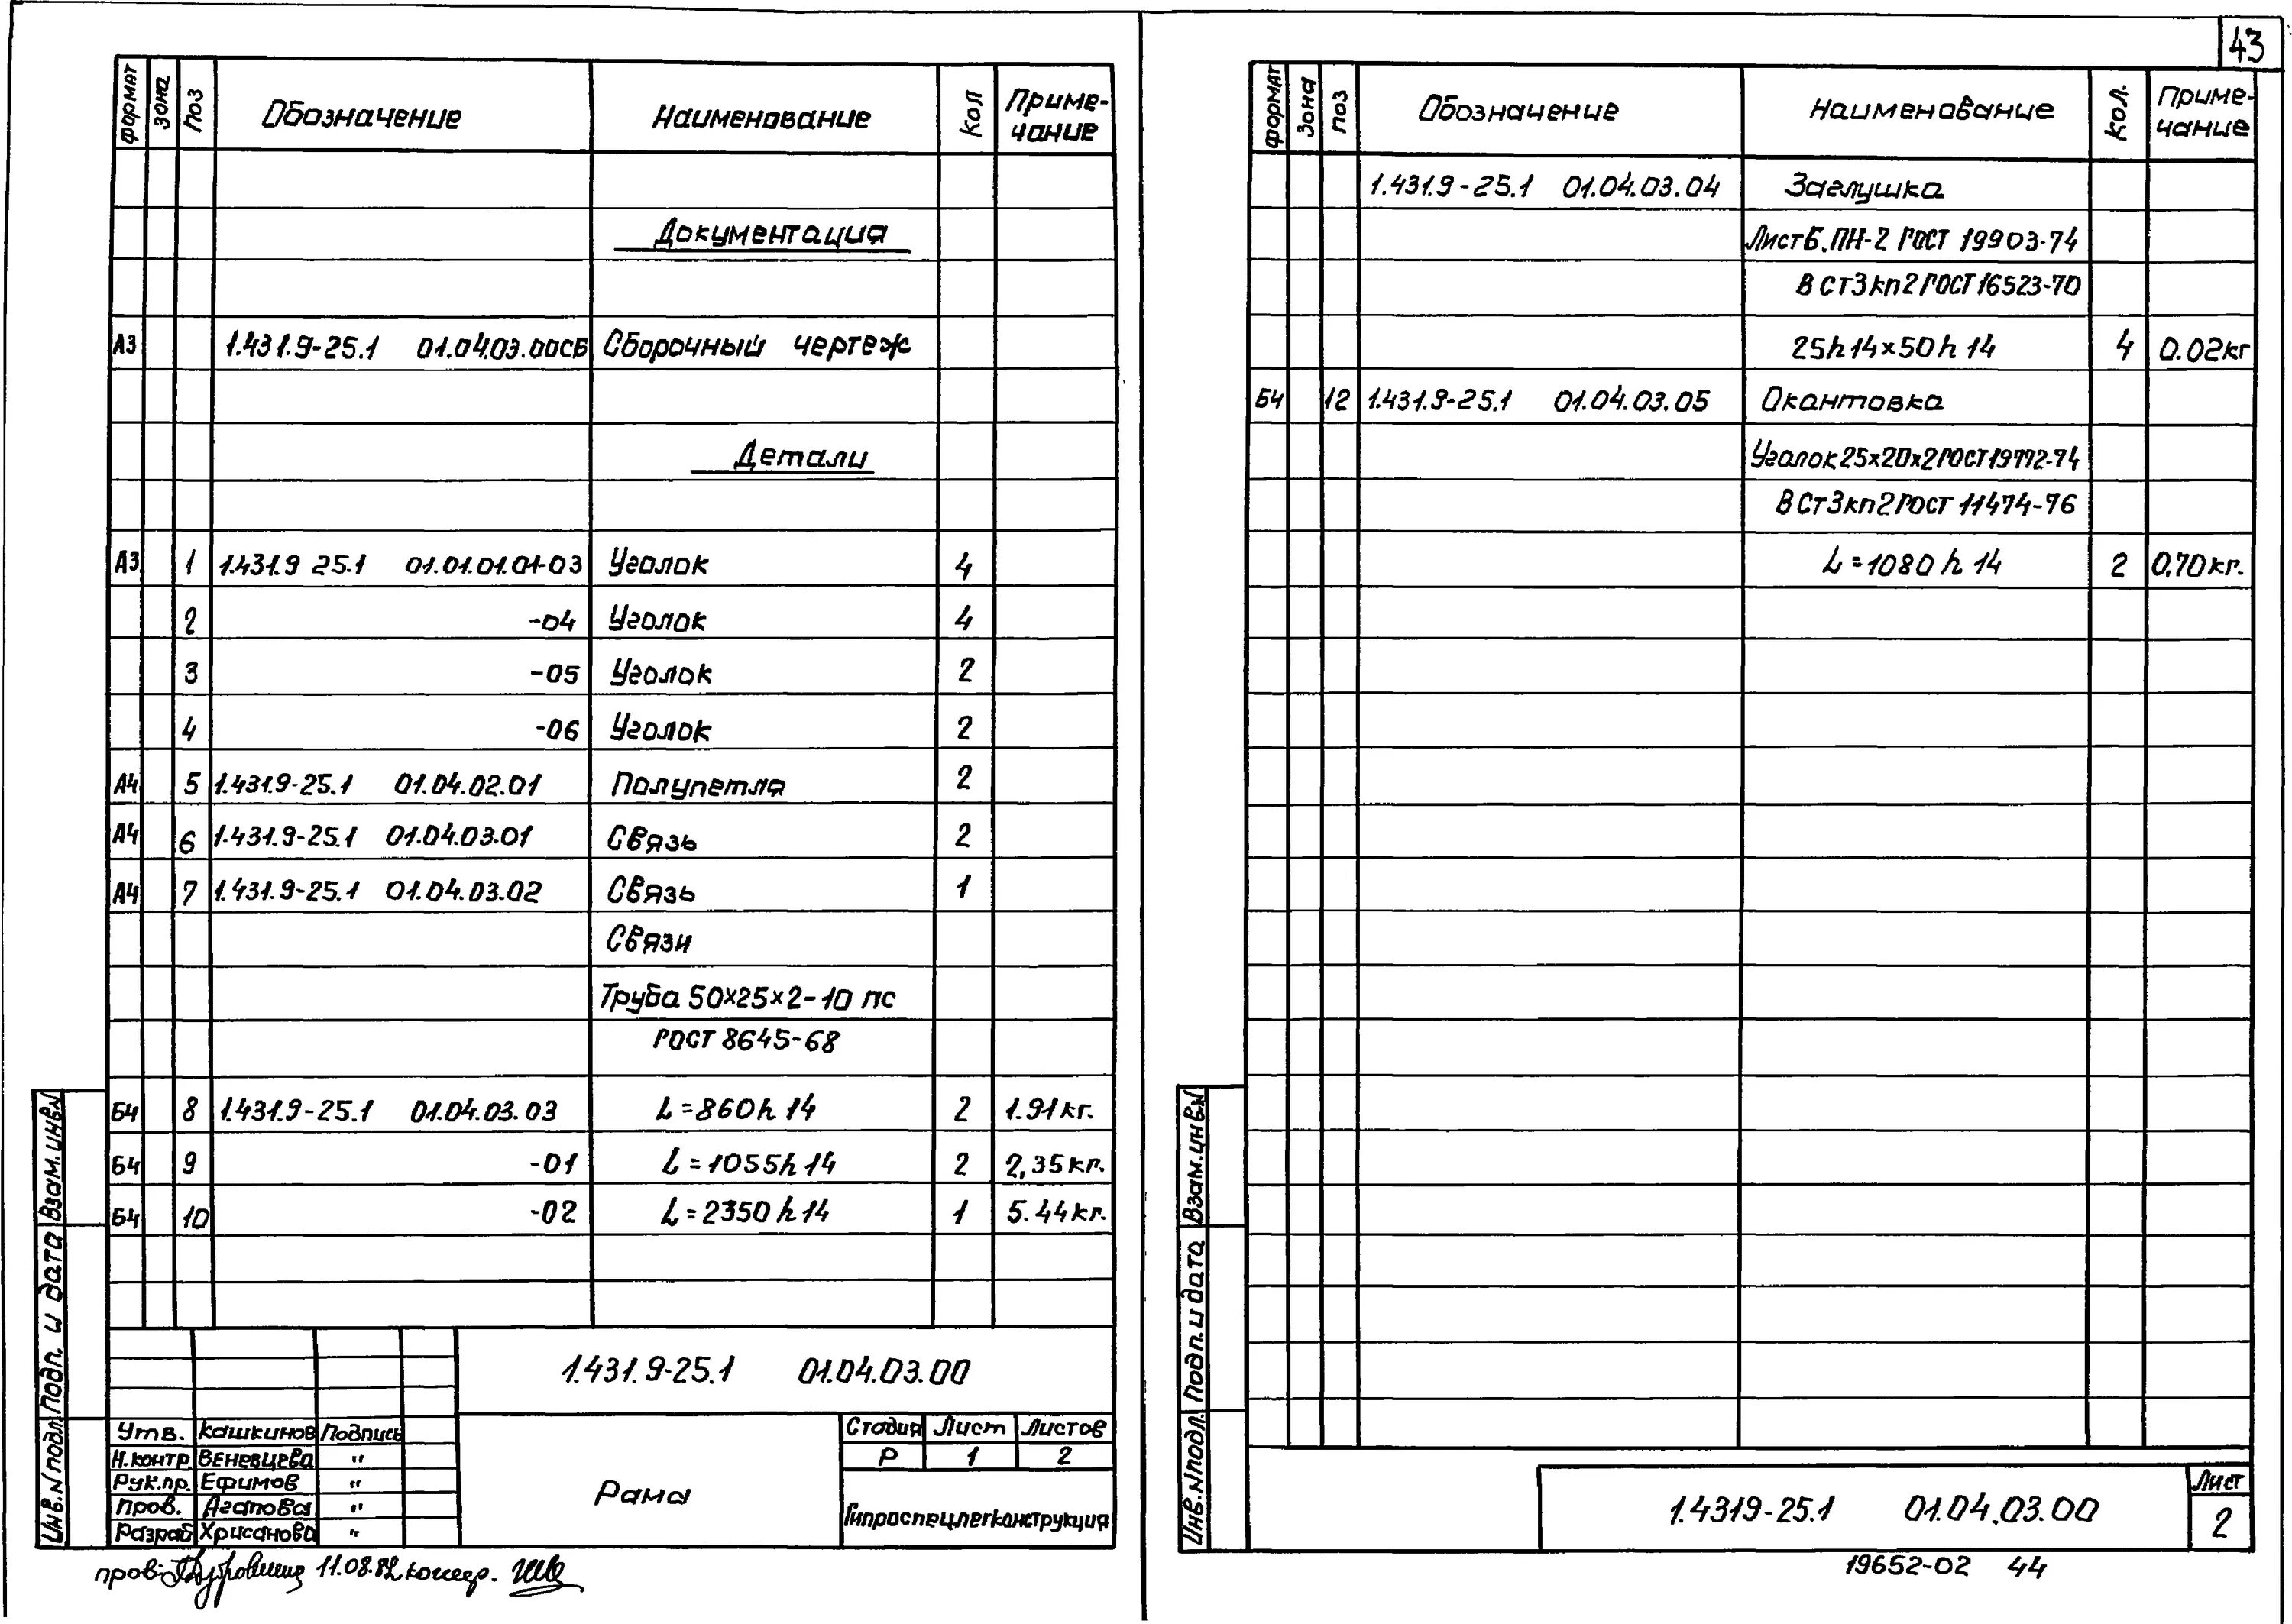 43
формат зона поз Обозначение Наименование Кол Приме-
чание
Документация
А3 1.431.9-25.1 01.04.03.00СБ Сборочный чертеж
Детали
А3 1 1.431.9 25.1 01.01.01.01-03 Уголок 4
2 -04 Уголок 4
3 -05 Уголок 2
4 -06 Уголок 2
А4 5 1.431.9-25.1 01.04.02.01 Полупетля 2
А4 6 1.431.9-25.1 01.04.03.01 Связь 2
А4 7 1.431.9-25.1 01.04.03.02 Связь 1
Связи
Труба 50х25х2-10 пс
ГОСТ 8645-68
БЧ 8 1.431.9-25.1 01.04.03.03 L=860h14 2 1.91кг.
БЧ 9 -01 L=1055h14 2 2,35кг.
БЧ 10 -02 L=2350h14 1 5.44кг.
1.431.9-25.1 01.04.03.00
Утв. Кашкинов Подпись
Н.контр. Веневцева "
Рук.пр. Ефимов "
Пров. Агапова "
Разраб Хрисанова "
Рама
Стадия Лист Листов
Р 1 2
Гипроспецлегконструкция
Инв.N подл. Подп. и дата Взам.инв.N
пров. 11.08.82
формат зона поз Обозначение Наименование Кол. Приме-
чание
1.431.9-25.1 01.04.03.04 Заглушка
Лист Б.ПН-2 ГОСТ 19903-74
В Ст3кп2 ГОСТ 16523-70
25h14х50h14 4 0.02кг
БЧ 12 1.431.9-25.1 01.04.03.05 Окантовка
Уголок 25х20х2 ГОСТ 19772-74
В Ст3кп2 ГОСТ 11474-76
L=1080h14 2 0,70кг.
Инв.N подл. Подп. и дата Взам.инв.N
1.431.9-25.1 01.04.03.00
Лист
2
19652-02 44